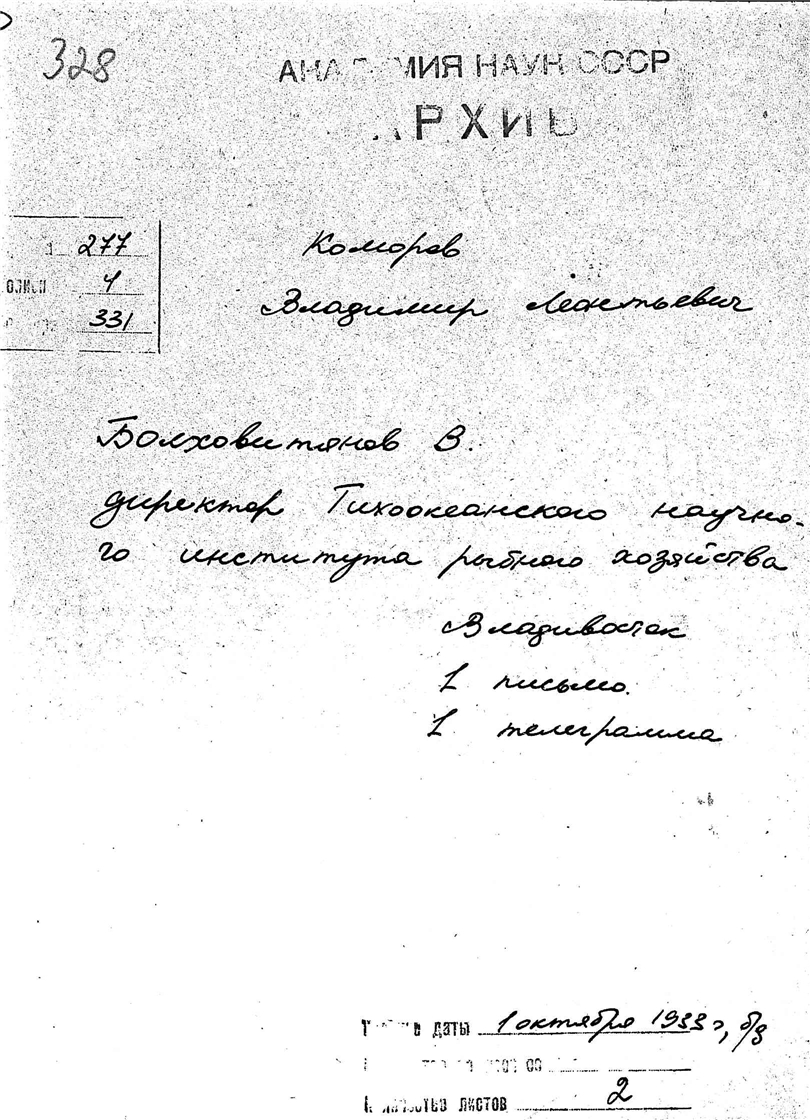 328
АКАДЕМИЯ НАУК СССР
АРХИВ
277
описи 4
331
Комаров
Владимир Леонтьевич
Болховитянов В.
директор Тихоокеанского научно-
го института рыбного хозяйства
Владивосток
1 письмо.
1 телеграмма
даты 1 октября 1933 г, б/д
Количество листов 2